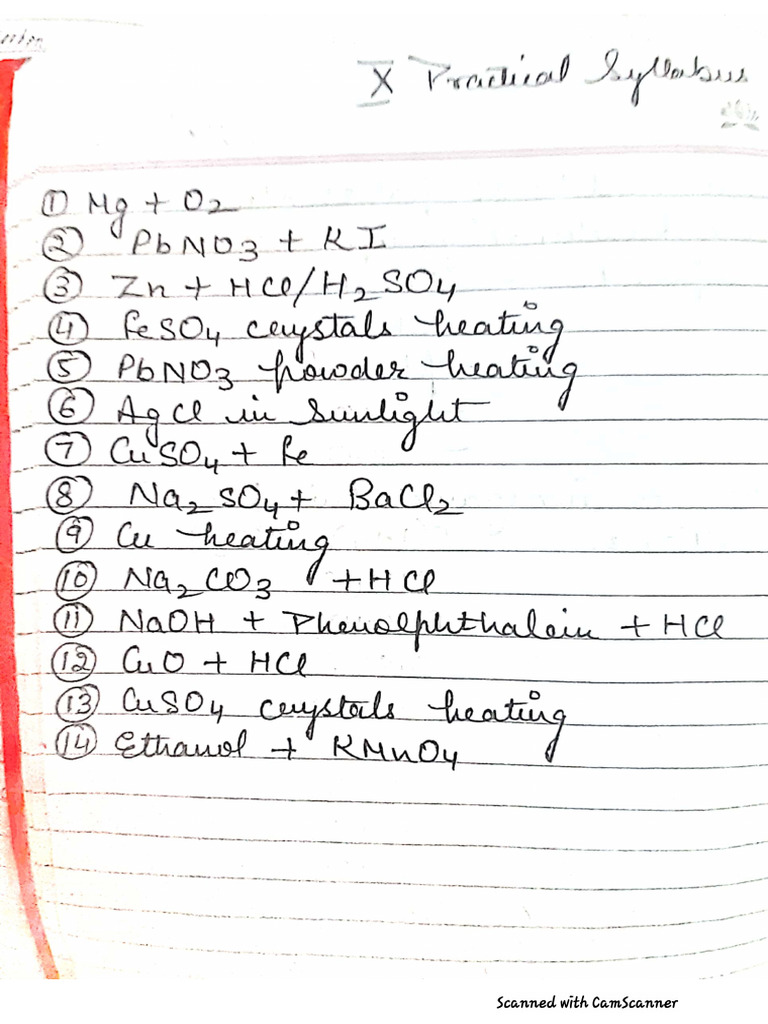 X Practical Syllabus
① Mg + O2
② PbNO3 + KI
③ Zn + HCl/H2SO4
④ FeSO4 crystals heating
⑤ PbNO3 powder heating
⑥ AgCl in Sunlight
⑦ CuSO4 + Fe
⑧ Na2SO4 + BaCl2
⑨ Cu heating
⑩ Na2CO3 + HCl
⑪ NaOH + Phenolphthalein + HCl
⑫ CuO + HCl
⑬ CuSO4 crystals heating
⑭ Ethanol + KMnO4
Scanned with CamScanner